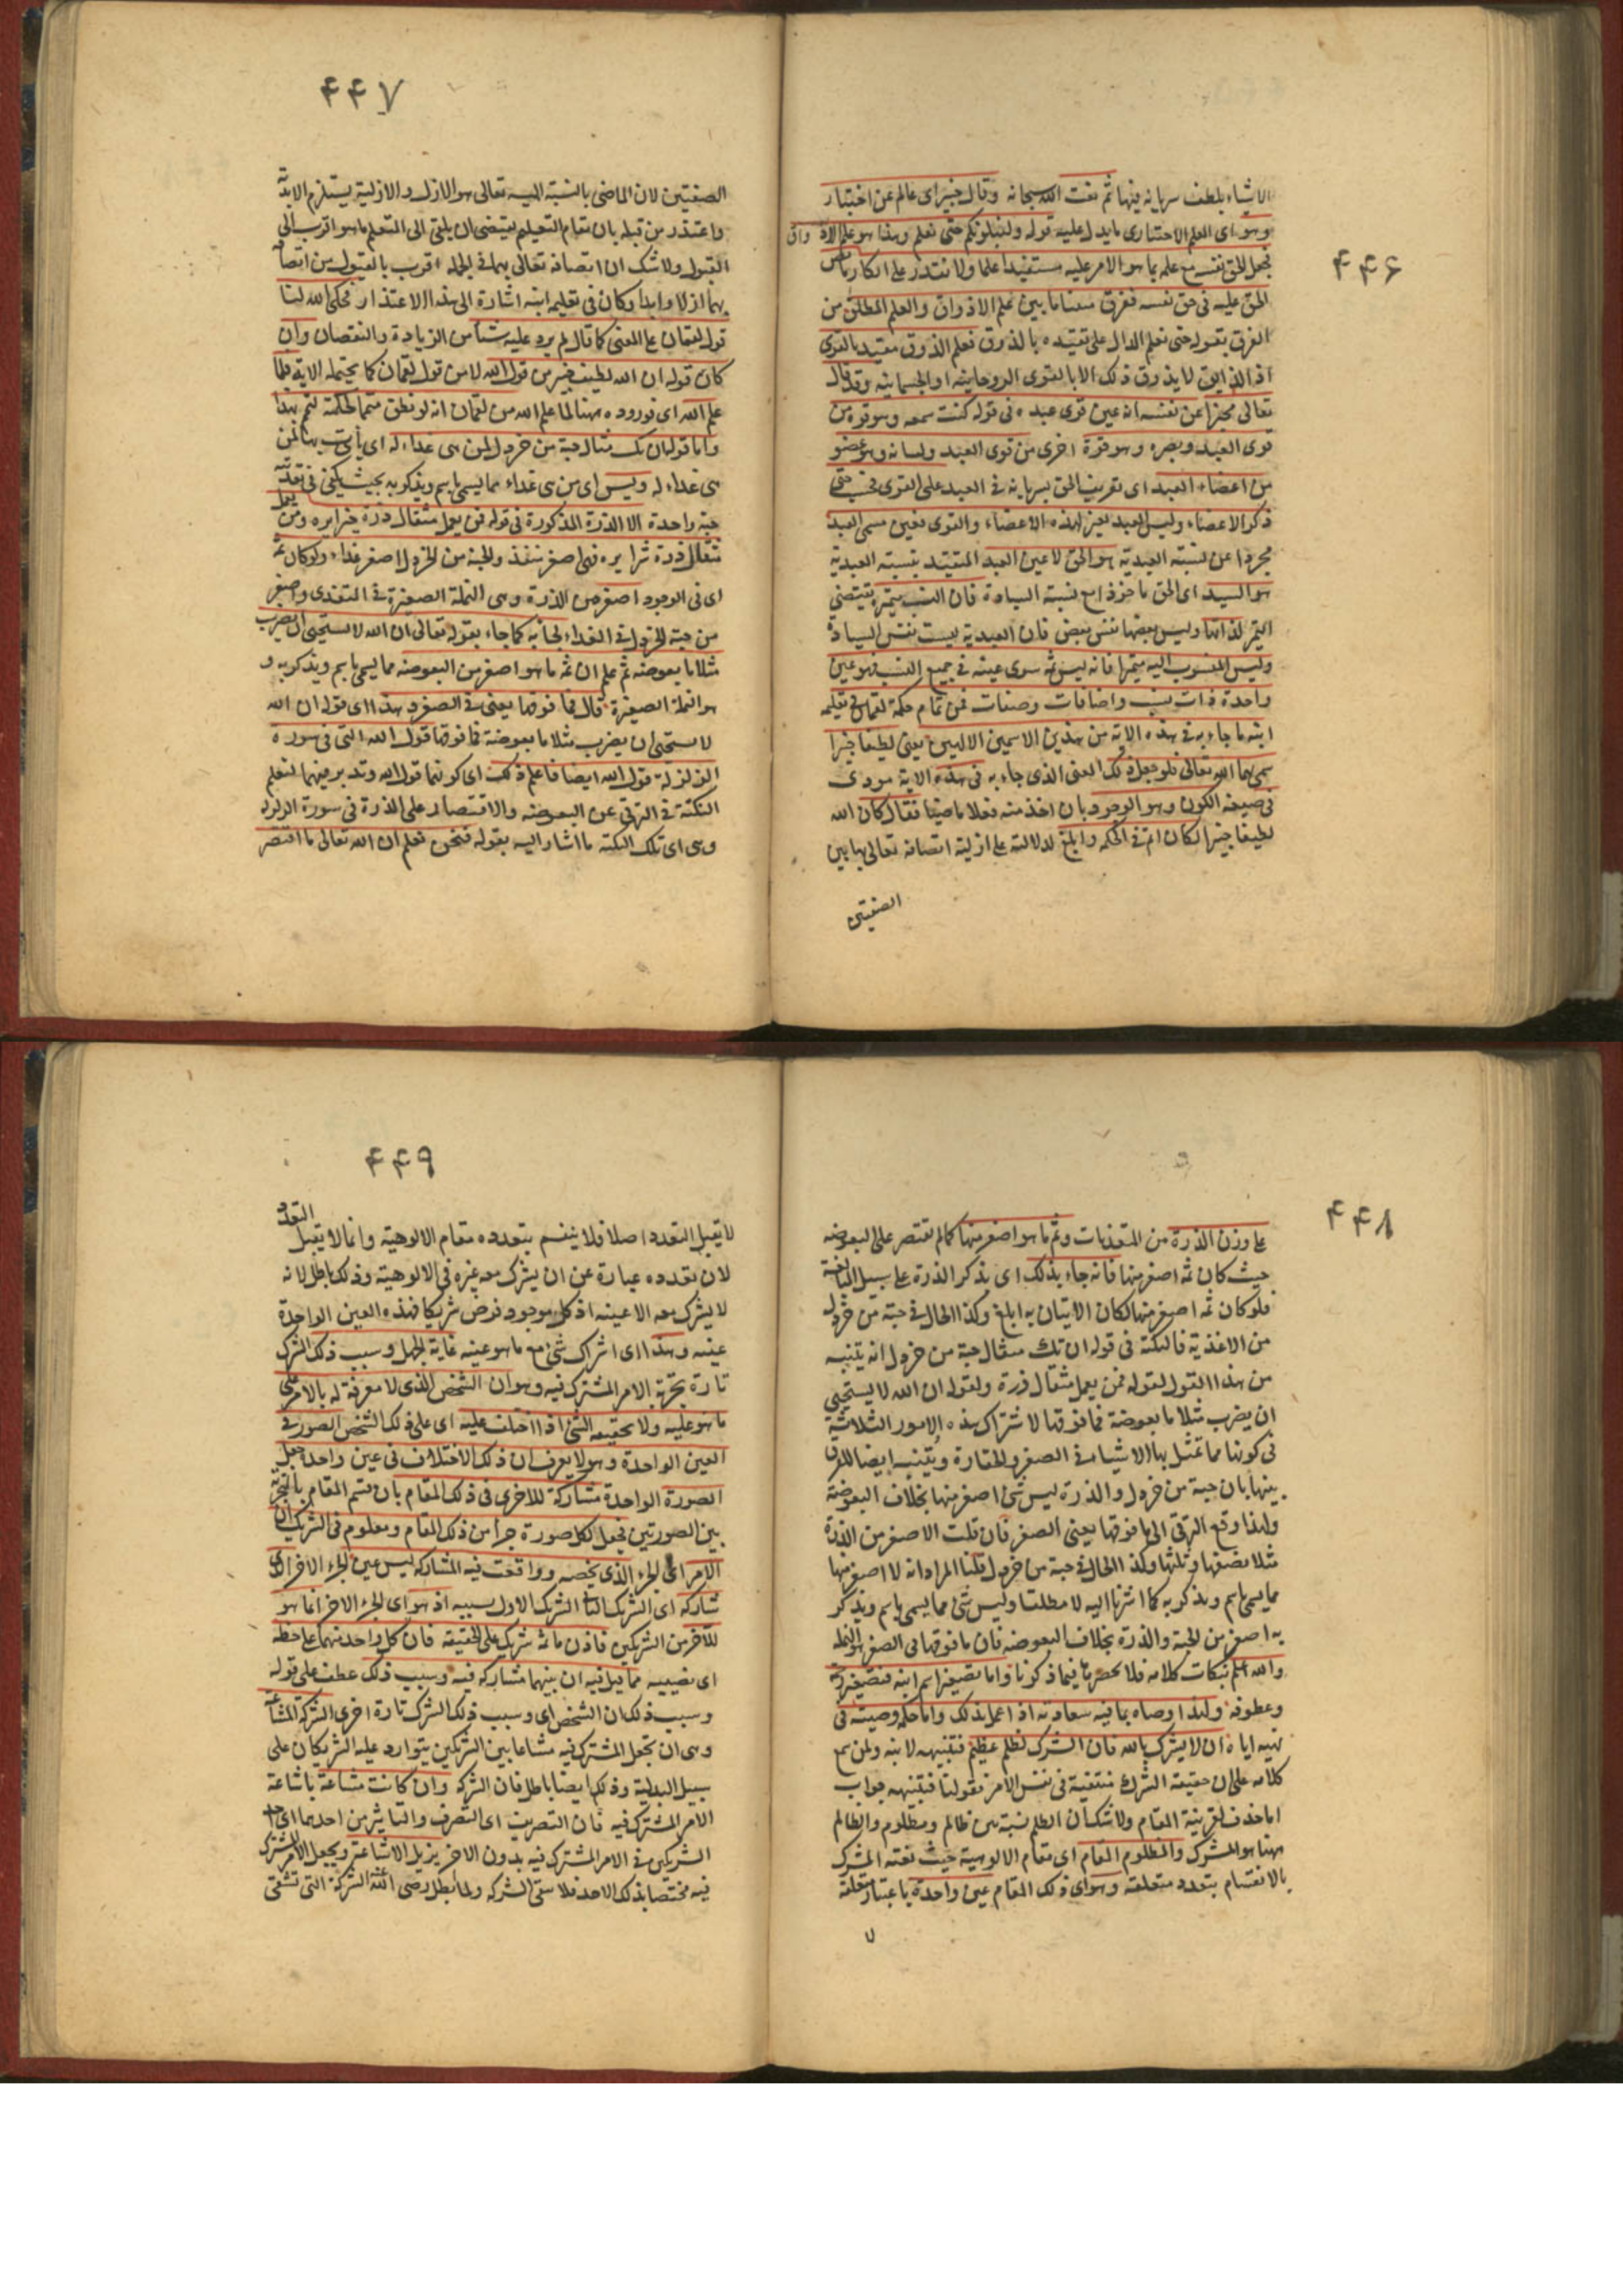 ۴۴۶
الاشياء بلطف سريانه فيها ثم نعت الله سبحانه وقال خبيرا اى عالم عن اختبار
وهو اى العلم الاختبارى ما يدل عليه قوله ولنبلونكم حتى نعلم وهذا هو علم الاذواق
فجعل الحق نفسه مع علمه بما هو الامر عليه مستفيدا علما ولا نقدر على انكار ما نص
الحق عليه فى حق نفسه ففرق سبحانه ما بين علم الاذواق والعلم المطلق من
الفرق بقوله حتى نعلم الدال على تقيده بالذوق فعلم الذوق مقيد بالقوى
اذ الذايق لا يذوق ذلك الا بالقوى الروحانية او الجسمانية وقد قال
تعالى مخبرا عن نفسه انه عين قوى عبده فى قوله كنت سمعه وهو قوة من
قوى العبد وبصره وهو قوة اخرى من قوى العبد ولسانه وهو عضو
من اعضاء العبد اى تعريف الحق بسريانه فى العبد على القوى فحسب حتى
ذكر الاعضاء وليس العبد بغير لهذه الاعضاء والقوى فعين مسمى العبد
مجردا عن نسبته العبدية هو الحق لا عين العبد المتقيد بنسبته العبدية
هو السيد اى الحق ماخوذا مع نسبته السيادة فان النسب متميزة يقتضى
التميز لذاتها وليس بعضها نفس بعض فان العبدية ليست نفس السيادة
وليس المنسوب اليه متميزا فانه ليس ثمه سوى عينه فى جميع النسب فهو عين
واحدة ذات نسب واضافات وصفات فمن تمام حكمة لقمان فى تعليمه
ابنه ما جاء به فى هذه الاية من هذين الاسمين الالهيين يعنى لطيفا خبيرا
سمى بهما الله تعالى فلو جعل ذلك المعنى الذى جاء به فى هذه الاية مودى
فى صيغه الكون وهو الوجود بان اخذ منه فعلا ماضيا فقال كان الله
لطيفا خبيرا لكان اتم فى الحكمه وابلغ لدلالته على ازلية اتصافه تعالى بهاتين
الصفتين
۴۴۷
الصفتين لان الماضى بالنسبته اليه تعالى هو الازل والازلية يستلزم الابدية
واعتذر من قبله بان مقام التعيلم يقتضى ان يلقى الى المتعلم ما هو اقرب الى
القبول ولا شك ان اتصافه تعالى بهما فى الجمله اقرب بالقبول من اتصافه
بهما ازلا وابدا وكان فى تعليمه ابنه اشارة الى هذا الاعتذار فحكى الله لنا
قول لقمان على المعنى كما قال لم يزد عليه شيئا من الزيادة والنقصان وان
كان قوله ان الله لطيف خبير من قول الله لا من قول لقمان كما يحتمله الاية فلما
علم الله اى فوروده ههنا لما علم الله من لقمان انه لو نطق متمما لحكمته لتمم بهذا
واما قوله ان تك مثقال حبة من خردل لمن هى غذاء له اى يأتى بها لمن
هى غذاء له وليس اى من هى غذاء مما يسمى باسم ويذكر به بحيث يكفى فى تغذيته
حبة واحدة الا الذرة المذكورة فى قوله فمن يعمل مثقال ذرة خيرا يره ومن يعمل
مثقال ذرة شرا يره فهى اصغر متغذ والحبة من الخردل اصغر غذاء ولو كان ثمه
اى فى الوجود اصغر من الذرة وهى النملة الصغيرة فى المتغذى واصغر
من حبة الخردل فى الغذاء لجا به كما جاء بقوله تعالى ان الله لا يستحيى ان يضرب
مثلا ما بعوضه ثم علم ان ثمه ما هو اصغر من البعوضه مما يسمى باسم ويذكر به و
هو النملة الصغيرة قال فما فوقها يعنى فى الصغر وهذا اى قوله ان الله
لا يستحيى ان يضرب مثلا ما بعوضة فما فوقها قول الله التى فى سورة
الزلزلة قول الله ايضا فاعلم ذلك اى كونهما قول الله وتدبر فيهما لتعلم
النكتة فى الترقى عن البعوضه والاقتصار على الذرة فى سورة الزلزلة
وهى اى تلك النكتة ما اشار اليه بقوله فنحن نعلم ان الله تعالى ما اقتصر
۴۴۸
على وزن الذرة من المتغذيات وثم ما هو اصغر منها كما لم تقتصر على البعوضه
حيث كان ثمه اصغر منها فانه جاء بذلك اى بذكر الذرة على سبيل المبالغة
فلو كان ثمه اصغر منها لكان الاتيان به ابلغ وكذا الحال فى حبة من خردل
من الاغذية فالنكتة فى قوله ان تك مثقال حبة من خردل انه يتنبه
من هذا القول لقوله فمن يعمل مثقال ذرة ولقوله ان الله لا يستحيى
ان يضرب مثلا ما بعوضة فما فوقها لاشتراك هذه الامور الثلاثة
فى كونها مما تمثل بها الاشياء فى الصغر والحقارة ويتنبه ايضا للفرق
بينها بان حبة من خردل والذرة ليس شئ اصغر منها بخلاف البعوضة
ولهذا وقع الترقى الى ما فوقها يعنى الصغر فان قلت الاصغر من الذرة
مثلا نصفها وثلثها وكذا الحال فى حبة من خردل قلنا المراد انه لا اصغر منها
مما يسمى باسم ويذكر به كما اشرنا اليه لا مطلقا وليس شئ مما يسمى باسم ويذكر
به اصغر من الحبة والذرة بخلاف البعوضه فان ما فوقها فى الصغر هو النمله
والله اعلم بنكات كلامه فلا نحصرها فيما ذكرنا واما تصغير اسم ابنه فتصغير رحمة
وعطوفة ولهذا وصاه بما فيه سعادته اذا عمل بذلك واما حكمة وصيته فى
نهيه اياه ان لا يشرك بالله فان الشرك لظلم عظيم فتنبيهه لابنه ولمن سمع
كلامه على ان حقيقة الشرك منتفية فى نفس الامر فقولنا فتنبيهه جواب
اما حذف لقرينة المقام ولا شك ان الظلم نسبة بين ظالم ومظلوم والظالم
ههنا هو المشرك والمظلوم المقام اى مقام الالوهية حيث نعته المشرك
بالانقسام بتعدد متعلقه وهو اى ذلك المقام عين واحدة باعتبار متعلقه
لا
۴۴۹
لا يقبل التعدد اصلا فلا ينقسم بتعدده مقام الالوهية وانما لا يقبل التعدد
لان تعدده عبارة عن ان يشرك معه غيره فى الالوهية وذلك باطل لانه
لا يشرك معه الا عينه اذ كل موجود فرض شريكا فهذه العين الواحدة
عينه وهذا اى اشراك شئ مع ما هو عينه غاية الجهل وسبب ذلك الشرك
تارة تجزية الامر المشترك فيه وهو ان الشخص الذى لا معرفة له بالامر على
ما هو عليه ولا بحقيقة الشئ اذا اختلفت عليه اى على ذلك الشخص الصور فى
العين الواحدة وهو لا يعرف ان ذلك الاختلاف فى عين واحدة جعل
الصورة الواحدة مشاركة للاخرى فى ذلك المقام بان قسم المقام بالتجزية
بين الصورتين فجعل لكل صورة جزأ من ذلك المقام ومعلوم فى الشريك ان
الامر اى الجزء الذى يخصه ووقعت فيه المشاركه ليس عين الجزء الاخر الذى
شاركه اى الشريك الثانى الشريك الاول بسببه اذ هو اى الجزء الاخر انما هو
للآخر من الشريكين فاذن ما ثمه شريك على الحقيقه فان كل واحد منهما على حظه
اى نصيبه مما قيل فيه ان بينهما مشاركه فيه وسبب ذلك عطف على قوله
وسبب ذلك ان الشخص اى وسبب ذلك الشرك تارة اخرى الشركة المشاعة
وهى ان تجعل المشترك فيه مشاعا بين الشريكين يتوارد عليه الشريكان على
سبيل البدلية وذلك ايضا باطل فان الشركة وان كانت مشاعة باشاعة
الامر المشترك فيه فان التصريف اى التصرف والتاثير من احدهما اى احد
الشريكين فى الامر المشترك فيه بدون الاخر يزيل الاشاعة ويجعل الامر المشترك
فيه مختصا بذلك الاحد فلا تبقى الشركه ولما ابطل رضى الله عنه الشركة التى تشقى